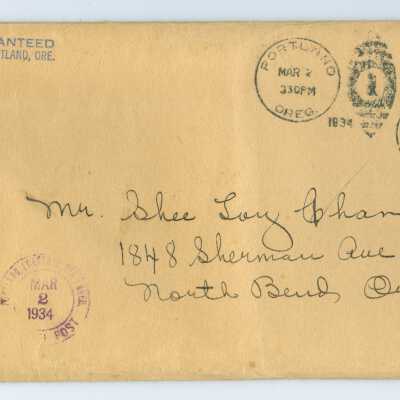 ANTEED
TLAND, ORE.
PORTLAND
MAR 2
330PM
OREG.
1934
Mr. Shee Loy Chan
1848 Sherman Ave
North Bend, O
MAR
2
1934
POST